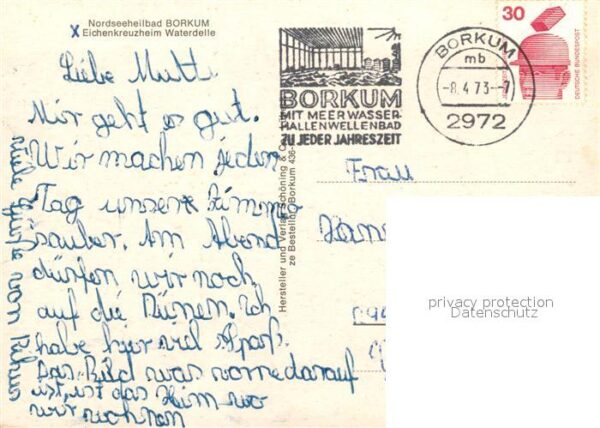 Nordseeheilbad BORKUM
X Eichenkreuzheim Waterdelle
Liebe Mutti
Mir geht es gut.
Wir machen jeden
Tag unser Zimmer
sauber. Am Abend
dürfen wir noch
auf die Dünen. Ich
habe hier viel Spaß.
Das Bild was vorne darauf
ist, ist das Heim wo
wir wohnen
viele Grüße von
Hersteller und Verlag Schöning & C
ze Bestellnr. Borkum 436-
BORKUM
MIT MEERWASSER-
HALLENWELLENBAD
ZU JEDER JAHRESZEIT
BORKUM
mb
-8.4.73--7
2972
30
DEUTSCHE BUNDESPOST
Frau
privacy protection
Datenschutz